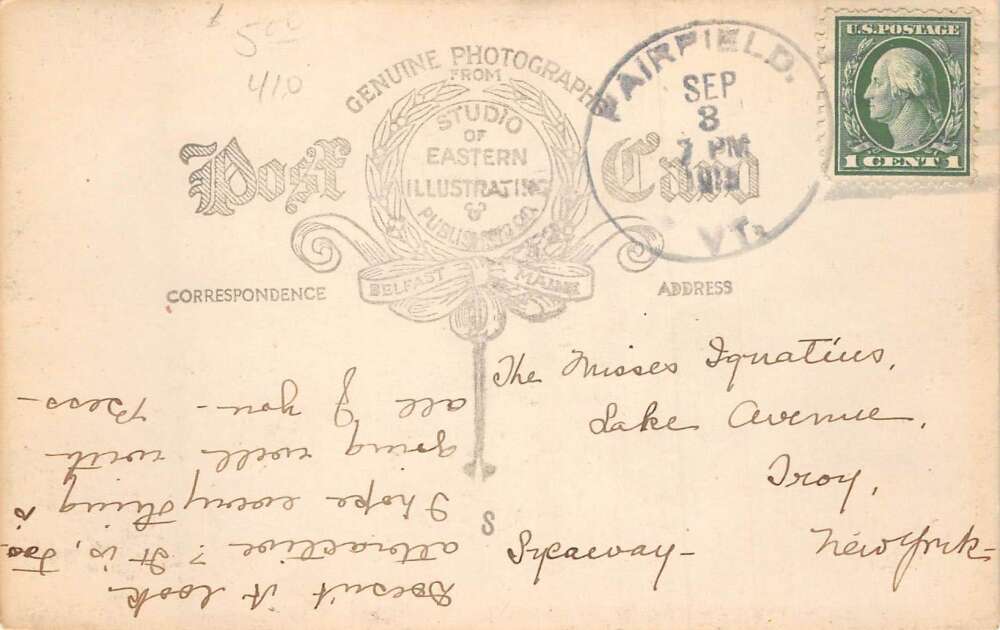 5 00
410
GENUINE PHOTOGRAPHS
FROM
STUDIO
OF
EASTERN
ILLUSTRATING
&
PUBLISHING CO.
BELFAST MAINE
Post Card
CORRESPONDENCE
ADDRESS
FAIRFIELD.
SEP
3
7 PM
VT.
U.S. POSTAGE
1 CENT 1
The Misses Ignatius,
Lake Avenue,
Troy,
Sycaway - New York -
S
Doesn't it look
attractive? It is, too -
I hope everything is
going well with
all of you - Bess -